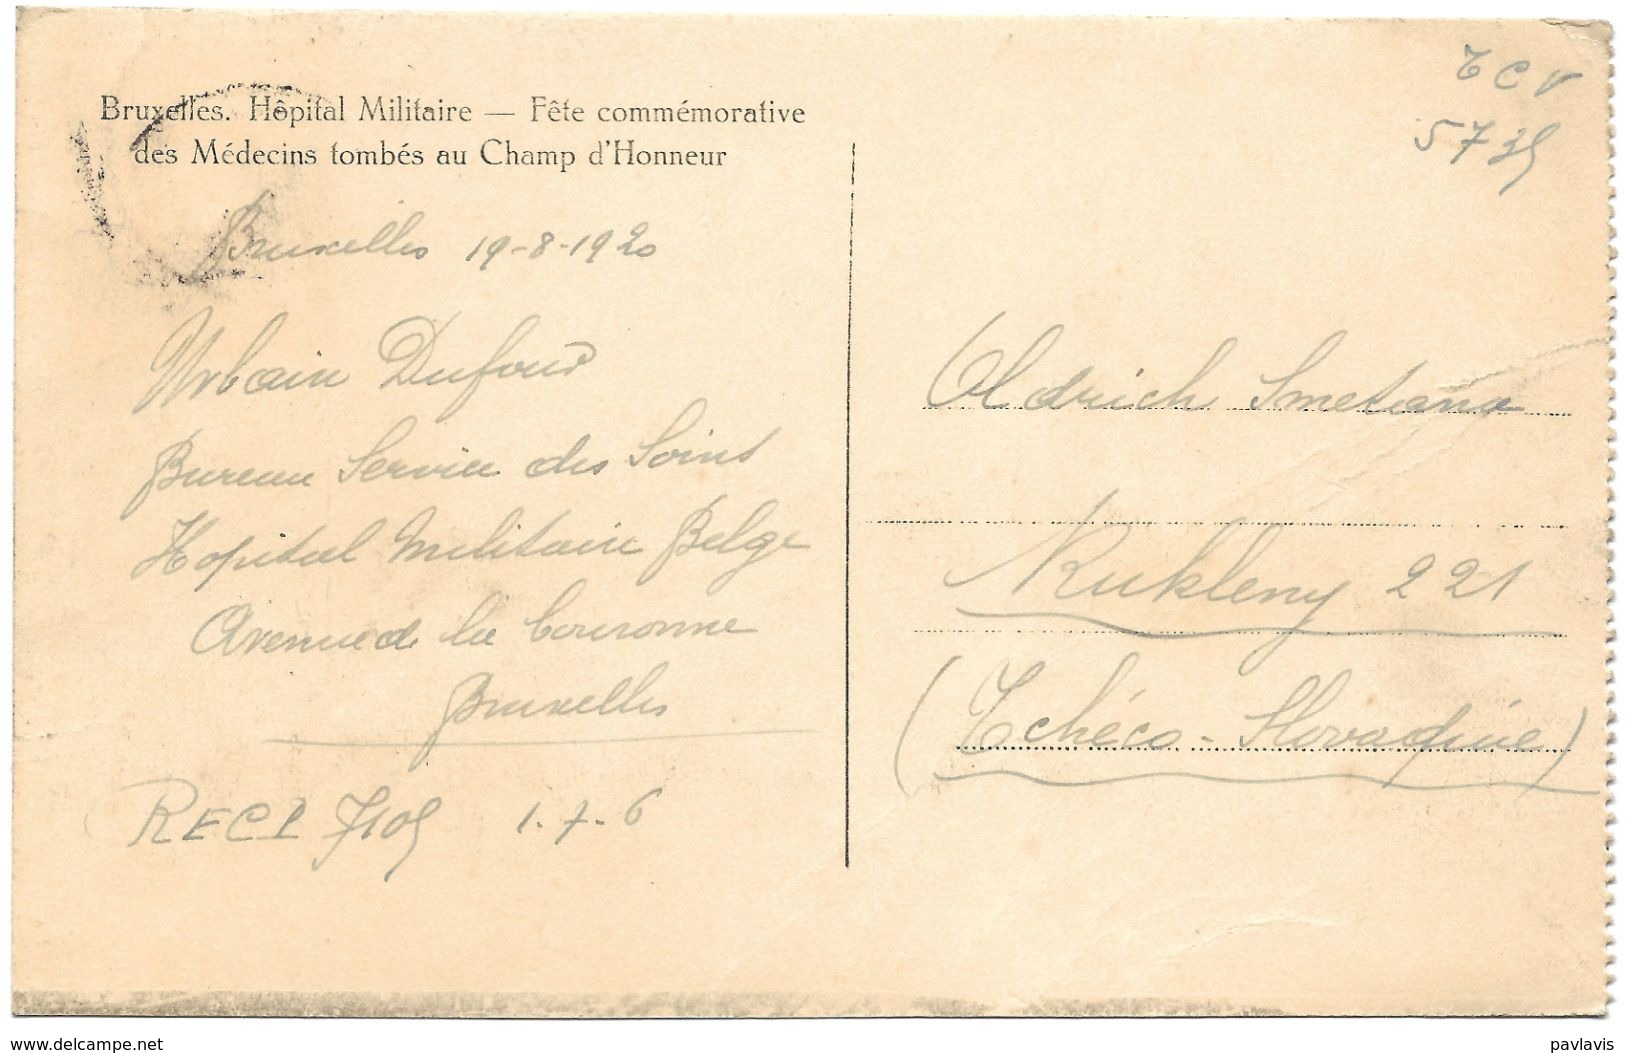 Bruxelles. Hôpital Militaire — Fête commémorative
des Médecins tombés au Champ d'Honneur
Bruxelles 19-8-1920
Urbain Dufour
Bureau Service des Soins
Hopital Militaire Belge
Avenue de la Couronne
Bruxelles
RECL 1-7-6
TCV
Oldrich Smetana
Kukleny 221
(Tchéco-Slovaquie)
delcampe.net
pavlavis